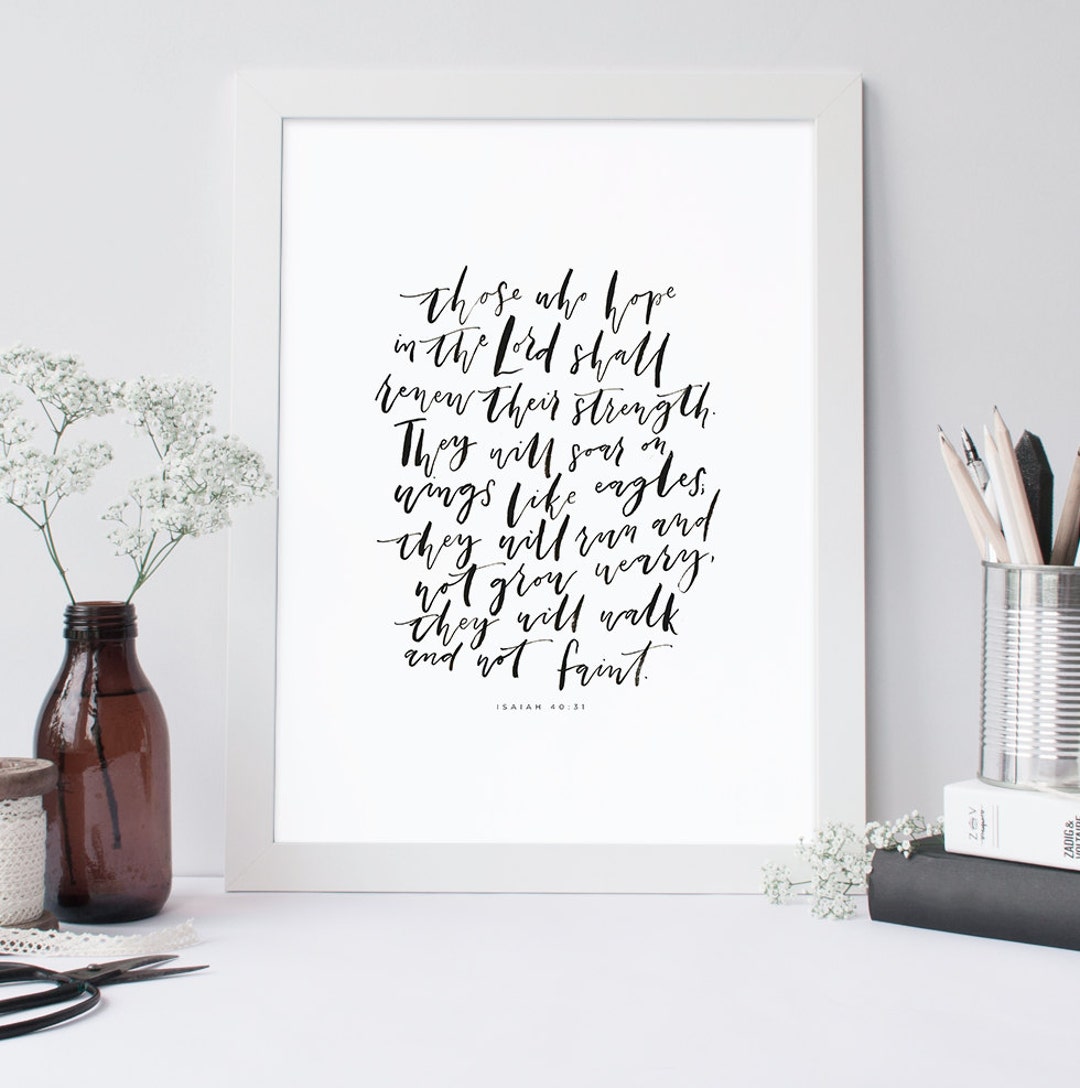 those who hope
in the Lord shall
renew their strength.
They will soar on
wings like eagles;
they will run and
not grow weary,
they will walk
and not faint.
ISAIAH 40:31
Z&V
ZADIG &
VOLTAIRE